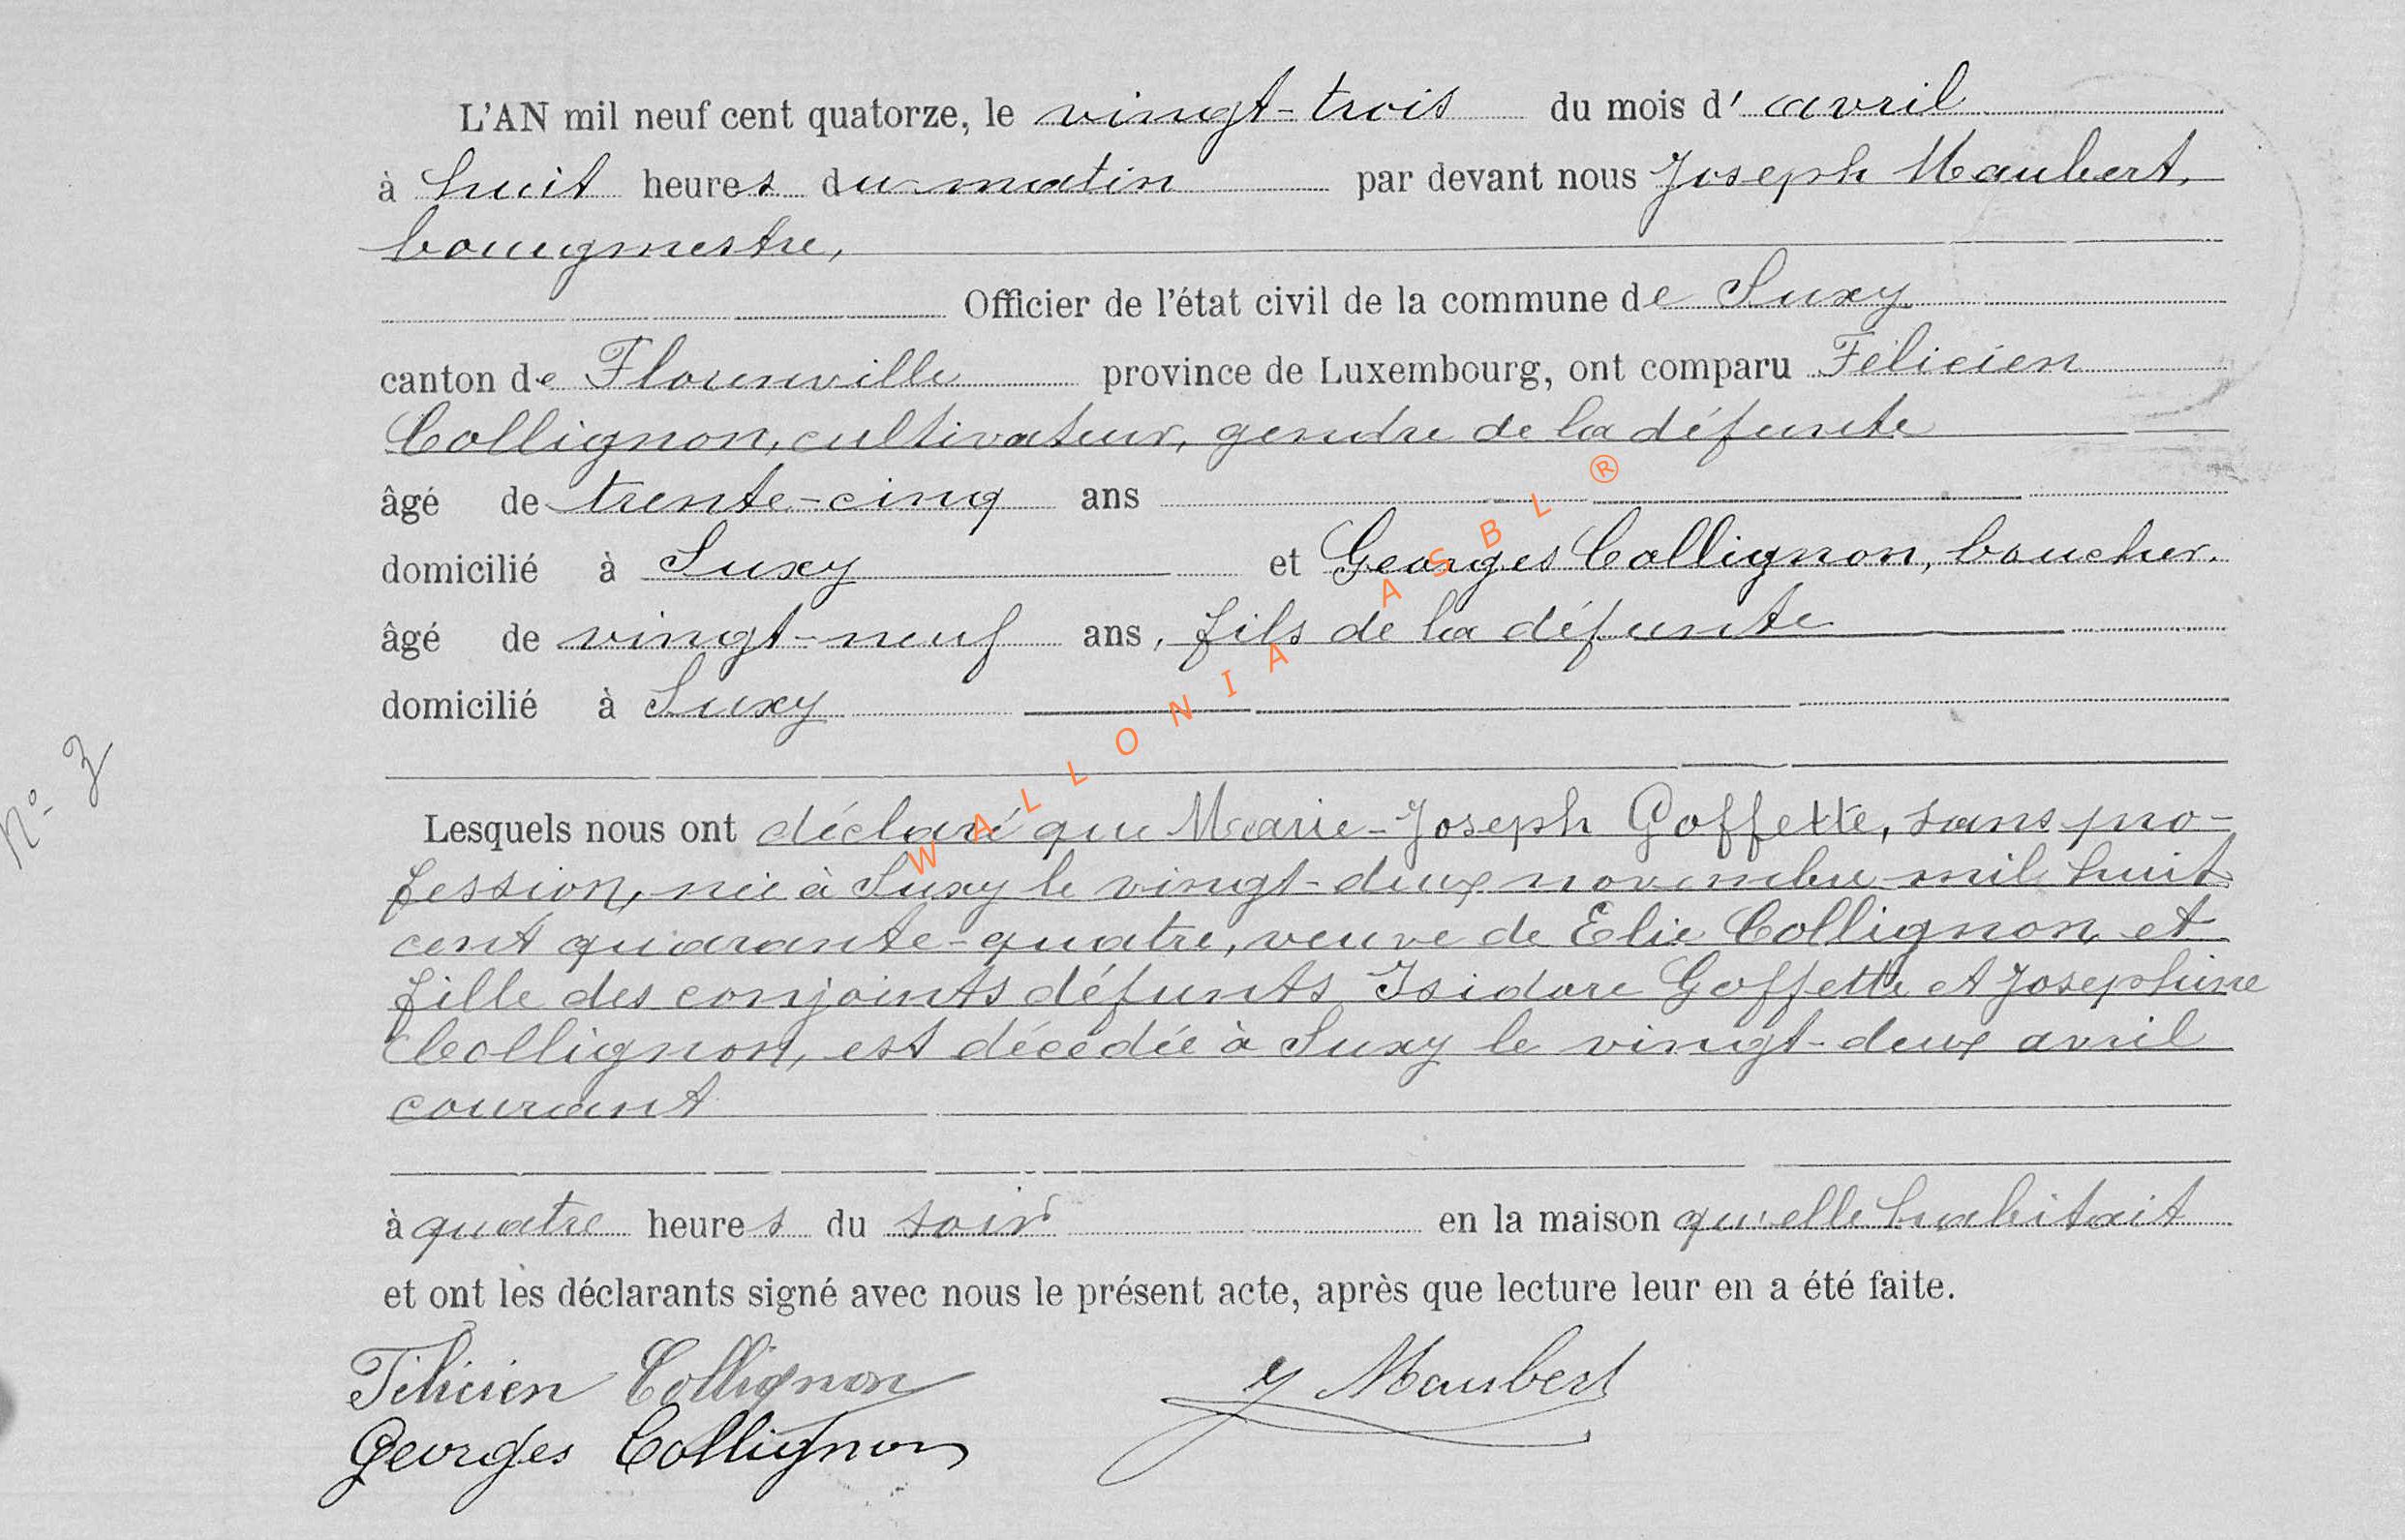 L'AN mil neuf cent quatorze, le vingt-trois du mois d'avril
à huit heures du matin par devant nous Joseph Maubert,
bourgmestre,
Officier de l'état civil de la commune de Suxy
canton de Florenville province de Luxembourg, ont comparu Félicien
Collignon, cultivateur, gendre de la défunte
âgé de trente-cinq ans
domicilié à Suxy et Georges Collignon, boucher.
âgé de vingt-neuf ans, fils de la défunte
domicilié à Suxy
N° 3
Lesquels nous ont déclaré que Marie-Joseph Goffette, sans pro-
fession, née à Suxy le vingt-deux novembre mil huit
cent quarante-quatre, veuve de Elie Collignon et
fille des conjoints défunts Isidore Goffette et Josephine
Collignon, est décédée à Suxy le vingt-deux avril
courant
à quatre heures du soir en la maison qu'elle habitait
et ont les déclarants signé avec nous le présent acte, après que lecture leur en a été faite.
Félicien Collignon J Maubert
Georges Collignon
WALLONIA ASBL ®